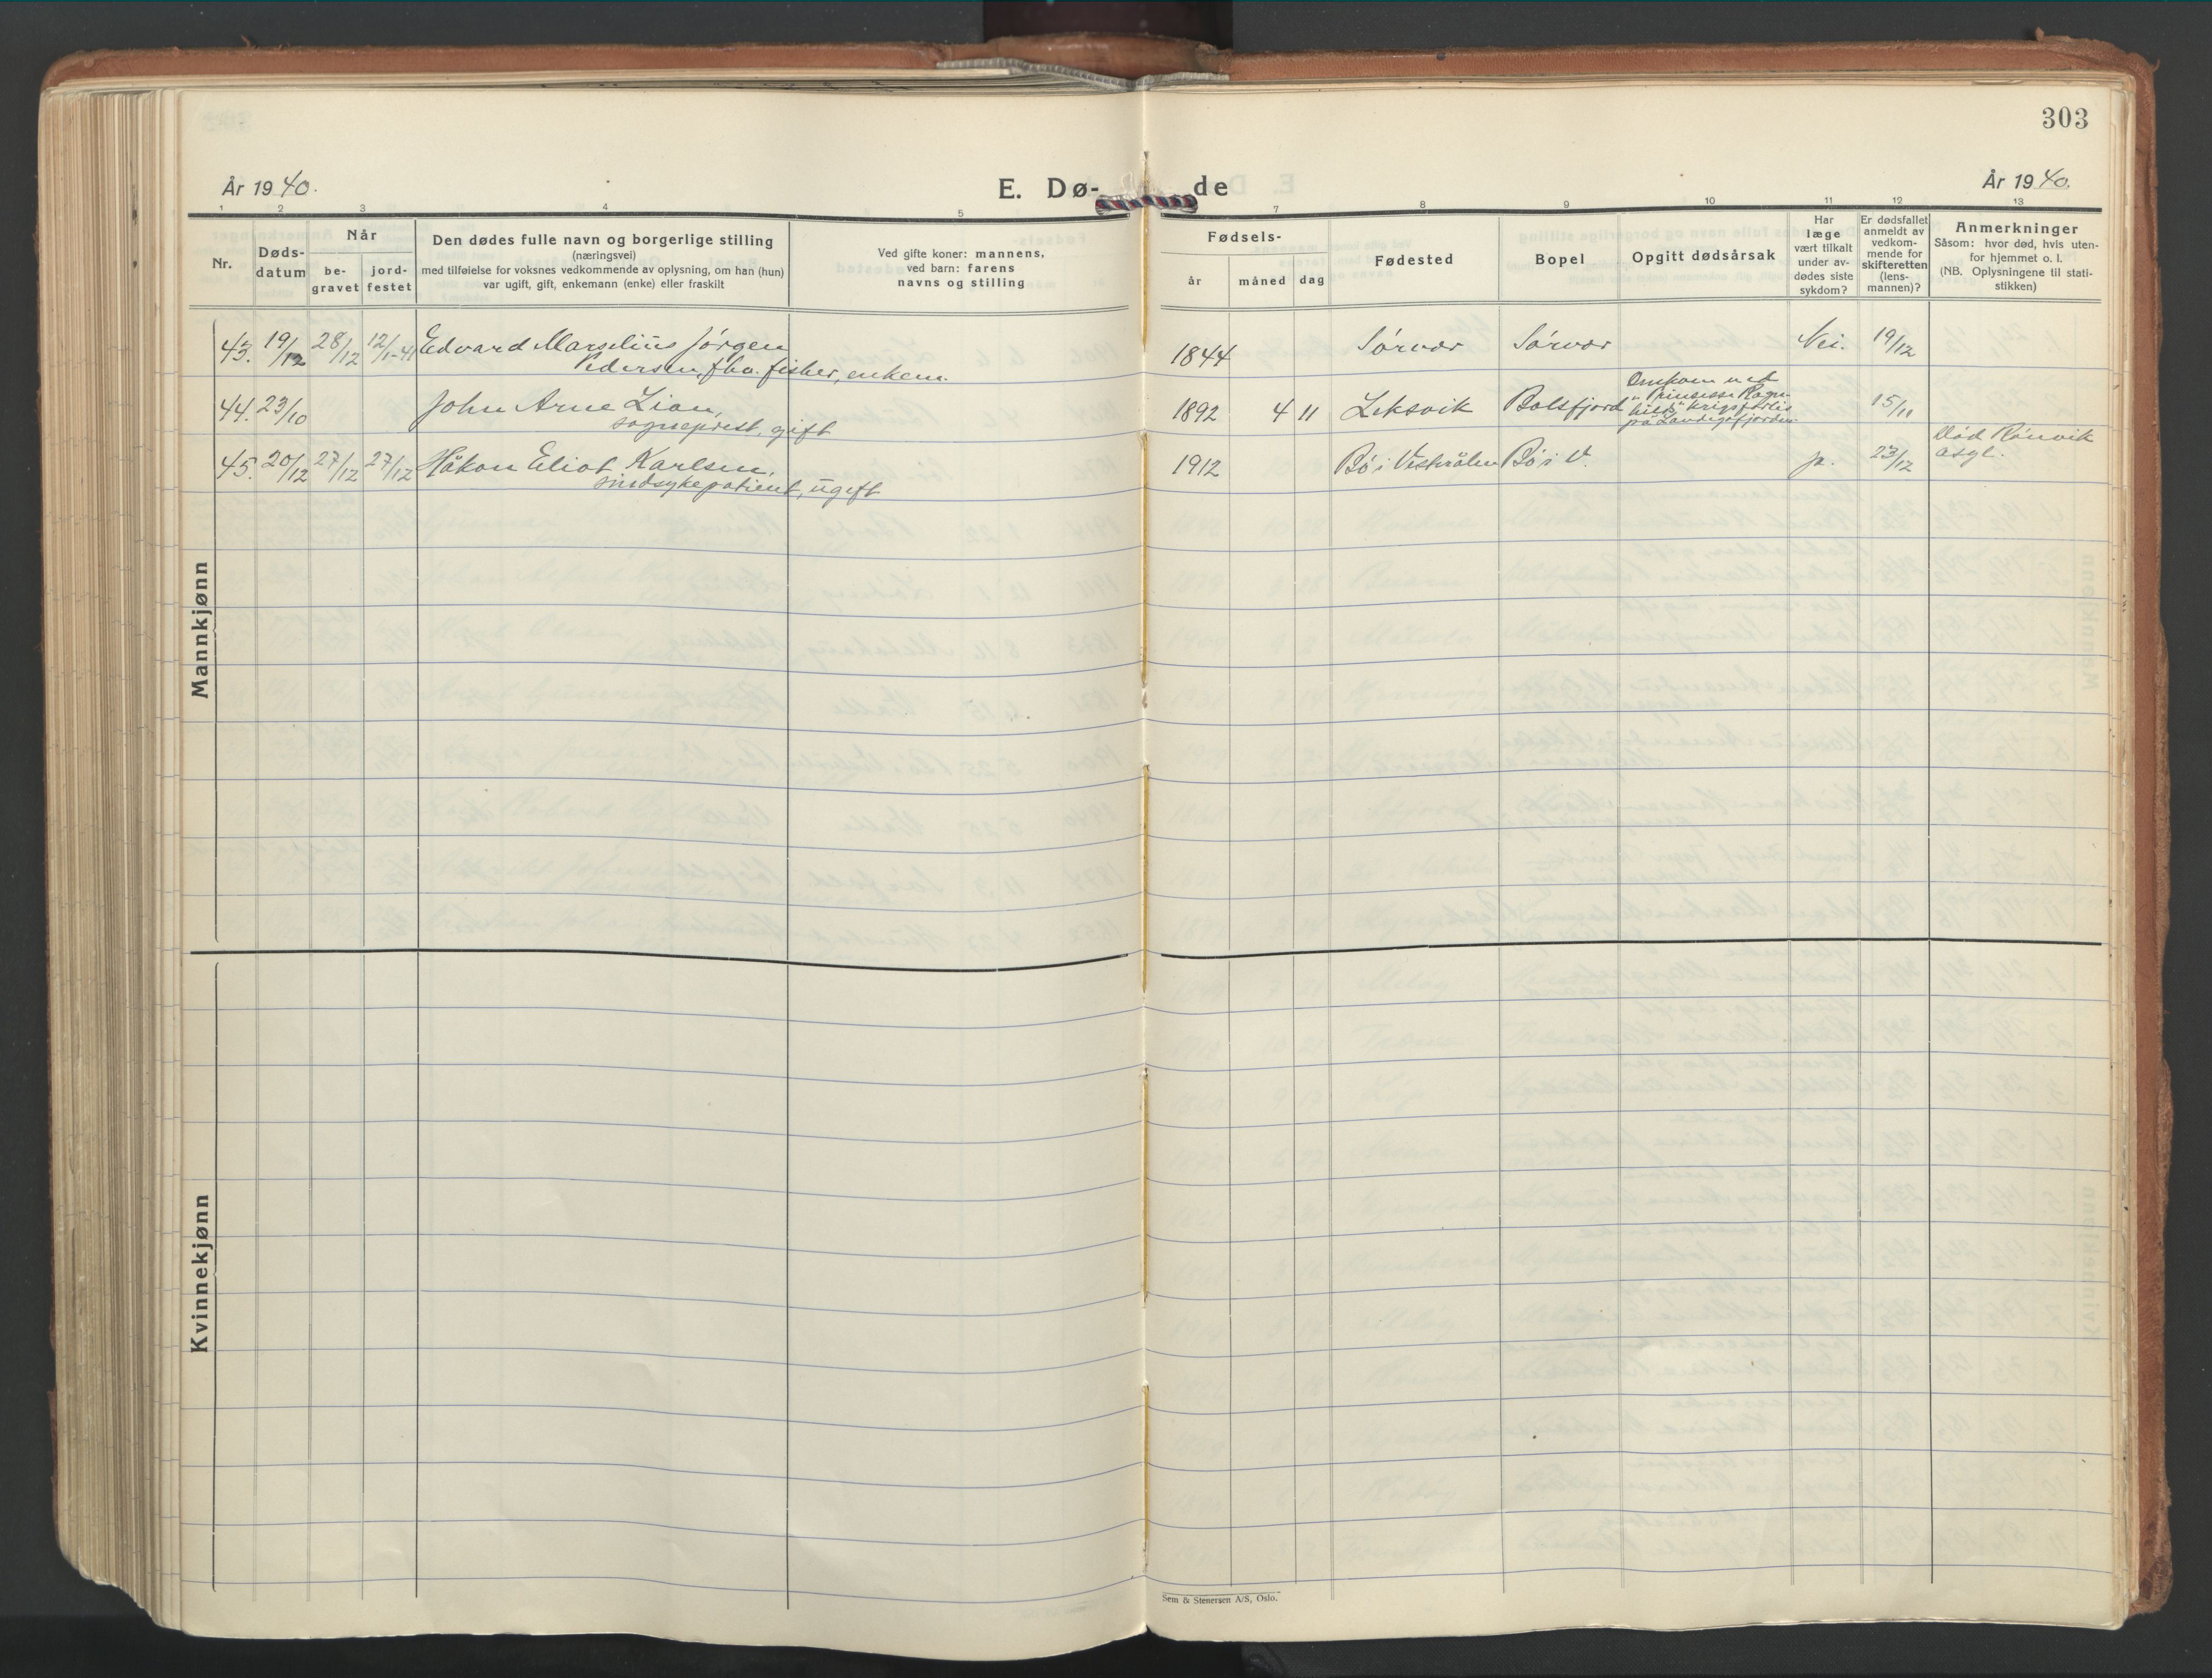 303
År 1940.
E. Dø-
de
År 1940.
1 2 3 4 5 7 8 9 10 11 12 13
Nr.
Døds-
datum
Når
be-
gravet
jord-
festet
Den dødes fulle navn og borgerlige stilling
(næringsvei)
med tilføielse for voksnes vedkommende av oplysning, om han (hun)
var ugift, gift, enkemann (enke) eller fraskilt
Ved gifte koner: mannens,
ved barn: farens
navns og stilling
Fødsels-
år
måned
dag
Fødested
Bopel
Opgitt dødsårsak
Har
læge
vært tilkalt
under av-
dødes siste
sykdom?
Er dødsfallet
anmeldt av
vedkom-
mende for
skifteretten
(lens-
mannen)?
Anmerkninger
Såsom: hvor død, hvis uten-
for hjemmet o. l.
(NB. Oplysningene til stati-
stikken)
Mannkjønn
43. 19/12 28/12 12/1-41 Edvard Marselius Jørgen
Pedersen, fho. fisker, enkem. 1844 Sørvær Sørvær Nei. 19/12
44. 23/10 John Arne Lian,
sogneprest, gift 1892 4 11 Leksvik Balsfjord
Omkom ved
"Prinsesse Ragn-
hild" krigsforlis
på Landegofjorden.
15/11
45. 20/12 27/12 27/12 Håkon Eliot Karlsen,
sindsykepatient, ugift 1912 Bø i Vesterålen Bø i V. ja. 23/12
Død Rønvik
asyl.
Kvinnekjønn
Sem & Stenersen A/S, Oslo.